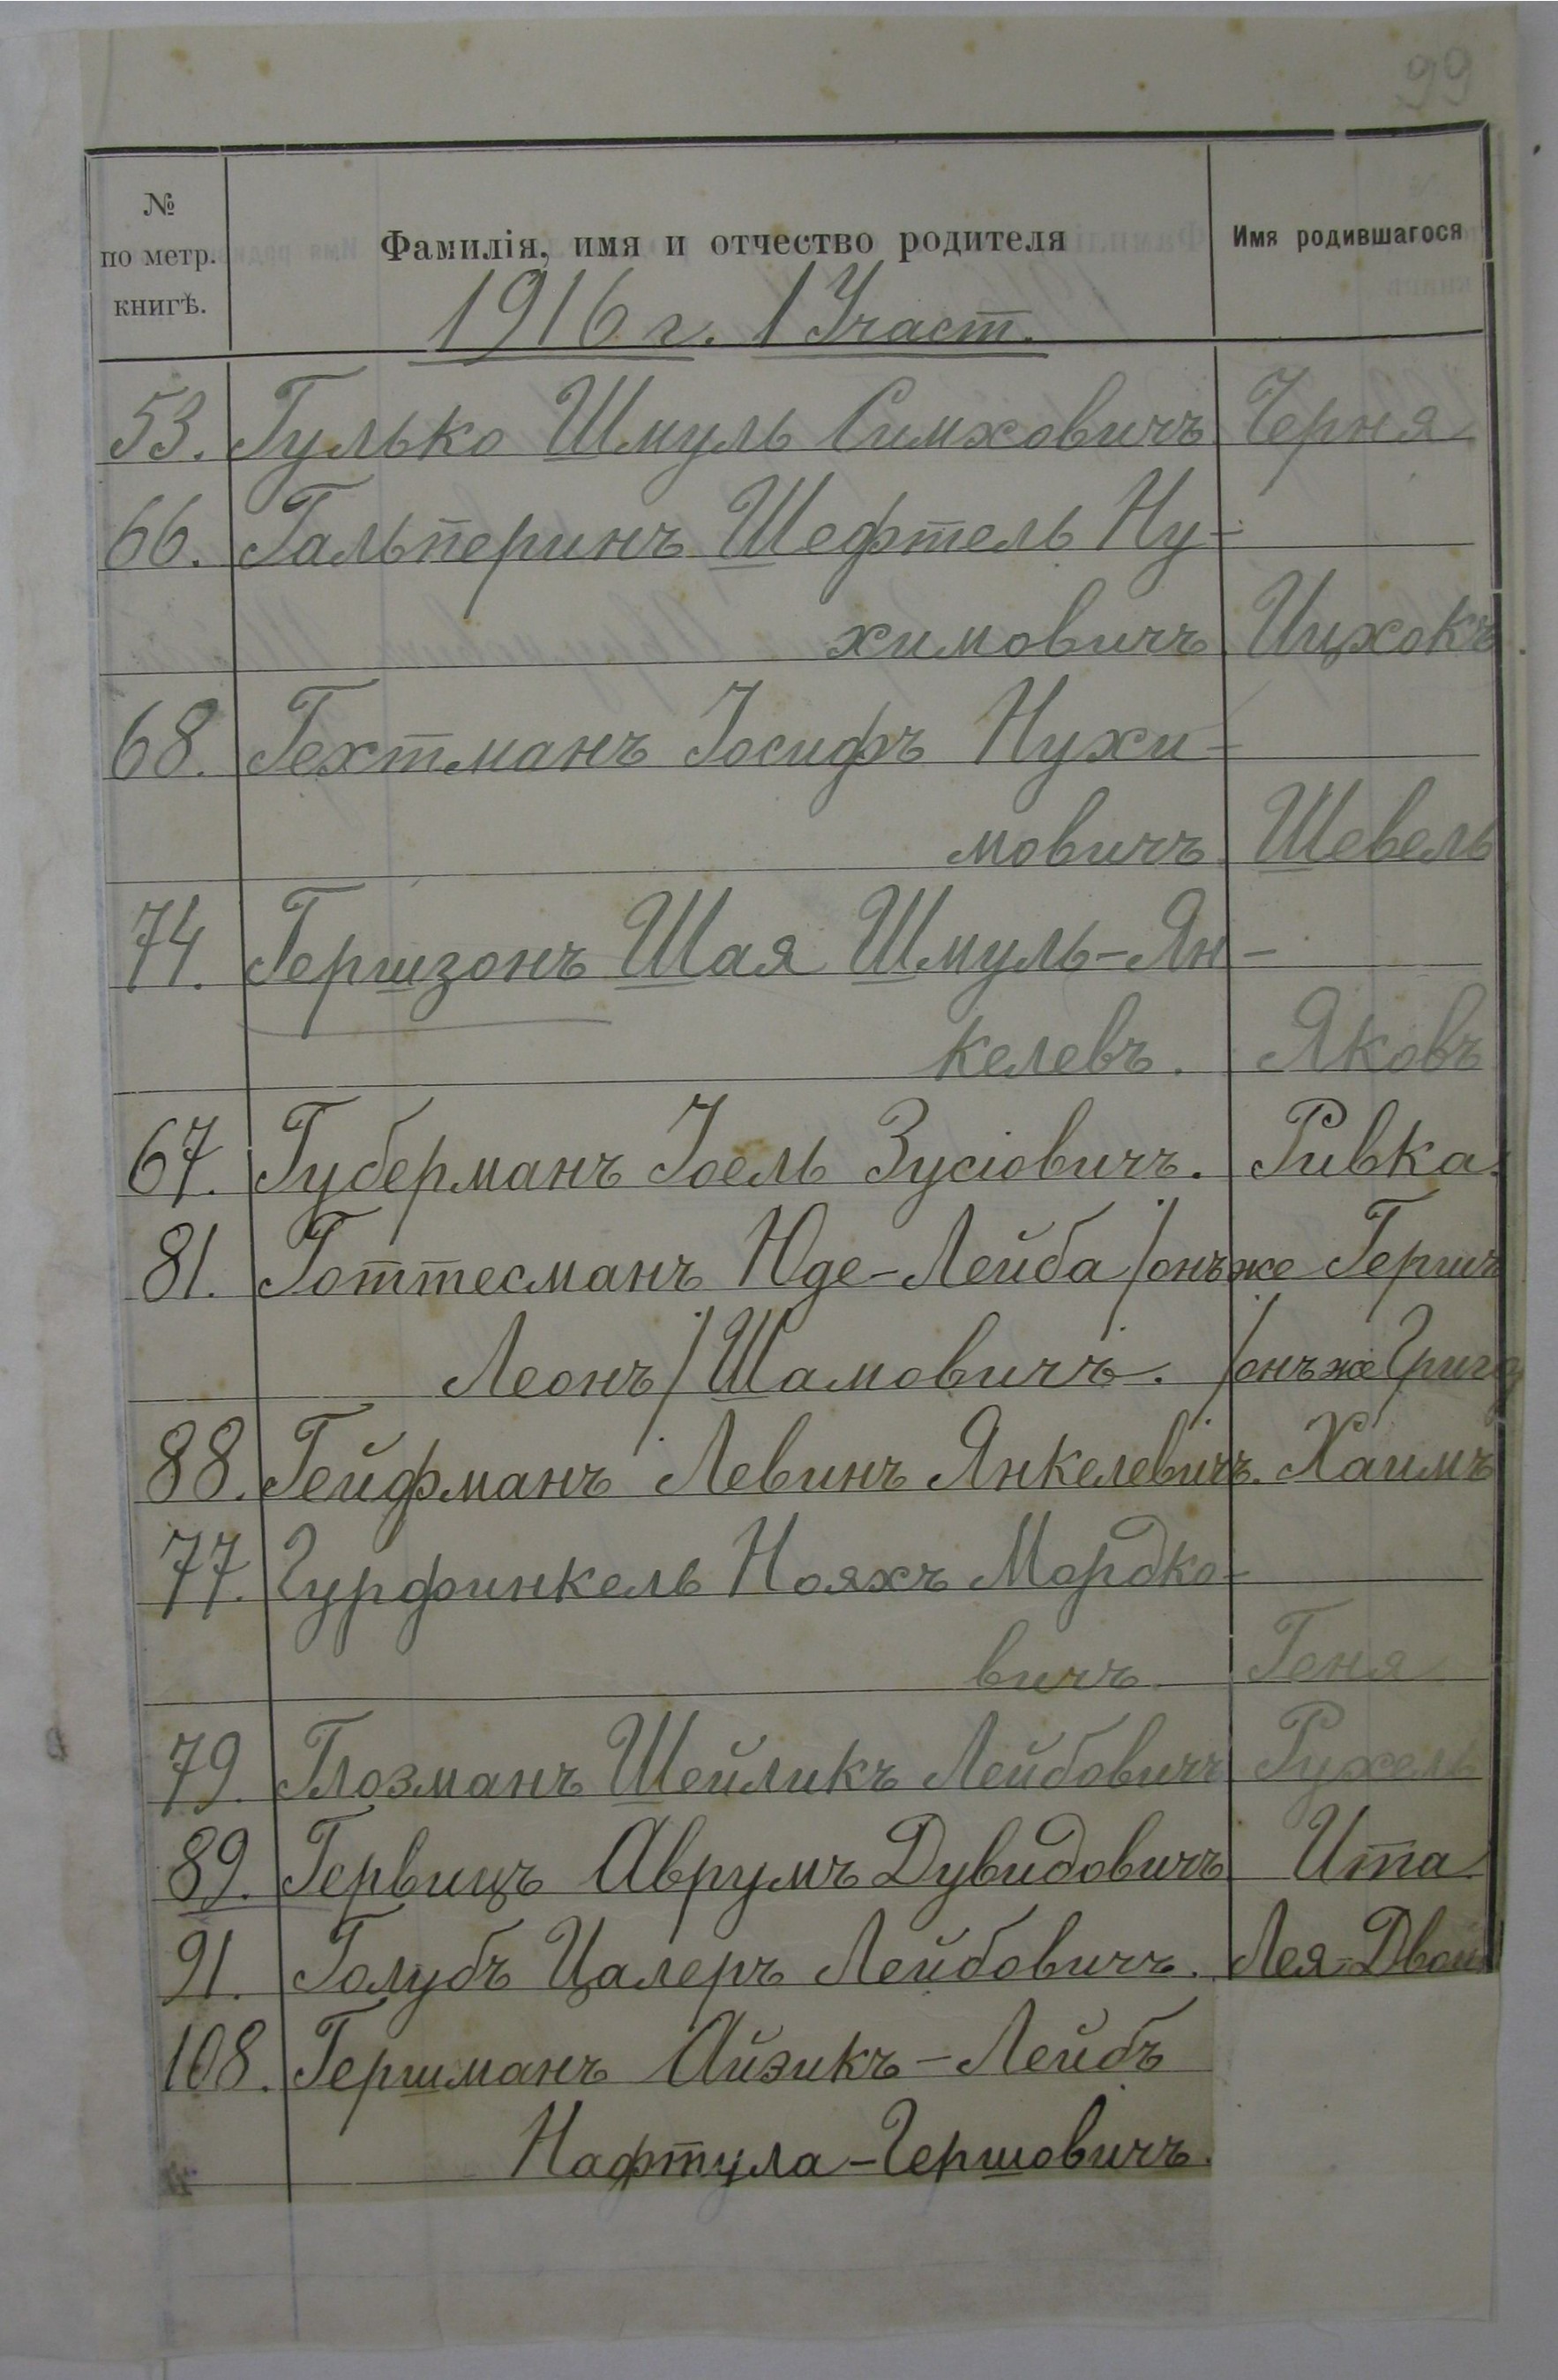 99
№ по метр. книгѣ.
Фамилія, имя и отчество родителя
Имя родившагося
1916 г. 1 Участ.
53. Гулько Шмуль Симховичъ Черня
66. Гальперинъ Шефтель Ну-
химовичъ Ицхокъ
68. Гехтманъ Іосифъ Нухи-
мовичъ Шевель
74. Гершзонъ Шая Шмуль-Ян-
келевъ. Яковъ
67. Губерманъ Іоель Зусіовичъ. Ривка.
81. Готтесманъ Юде-Лейба /онъ же Гершъ
Леонъ/ Шамовичъ. /онъ же Григо
88. Гейфманъ Левинъ Янкелевичъ. Хаимъ
77. Гурфинкель Нояхъ Мордко-
вичъ Геня
79. Глозманъ Шейликъ Лейбовичъ Рухель
89. Гервицъ Аврумъ Дувидовичъ Ита
91. Голубъ Цалеръ Лейбовичъ. Лея-Двой
108. Гершманъ Айзикъ-Лейбъ
Нафтула-Гершовичъ.